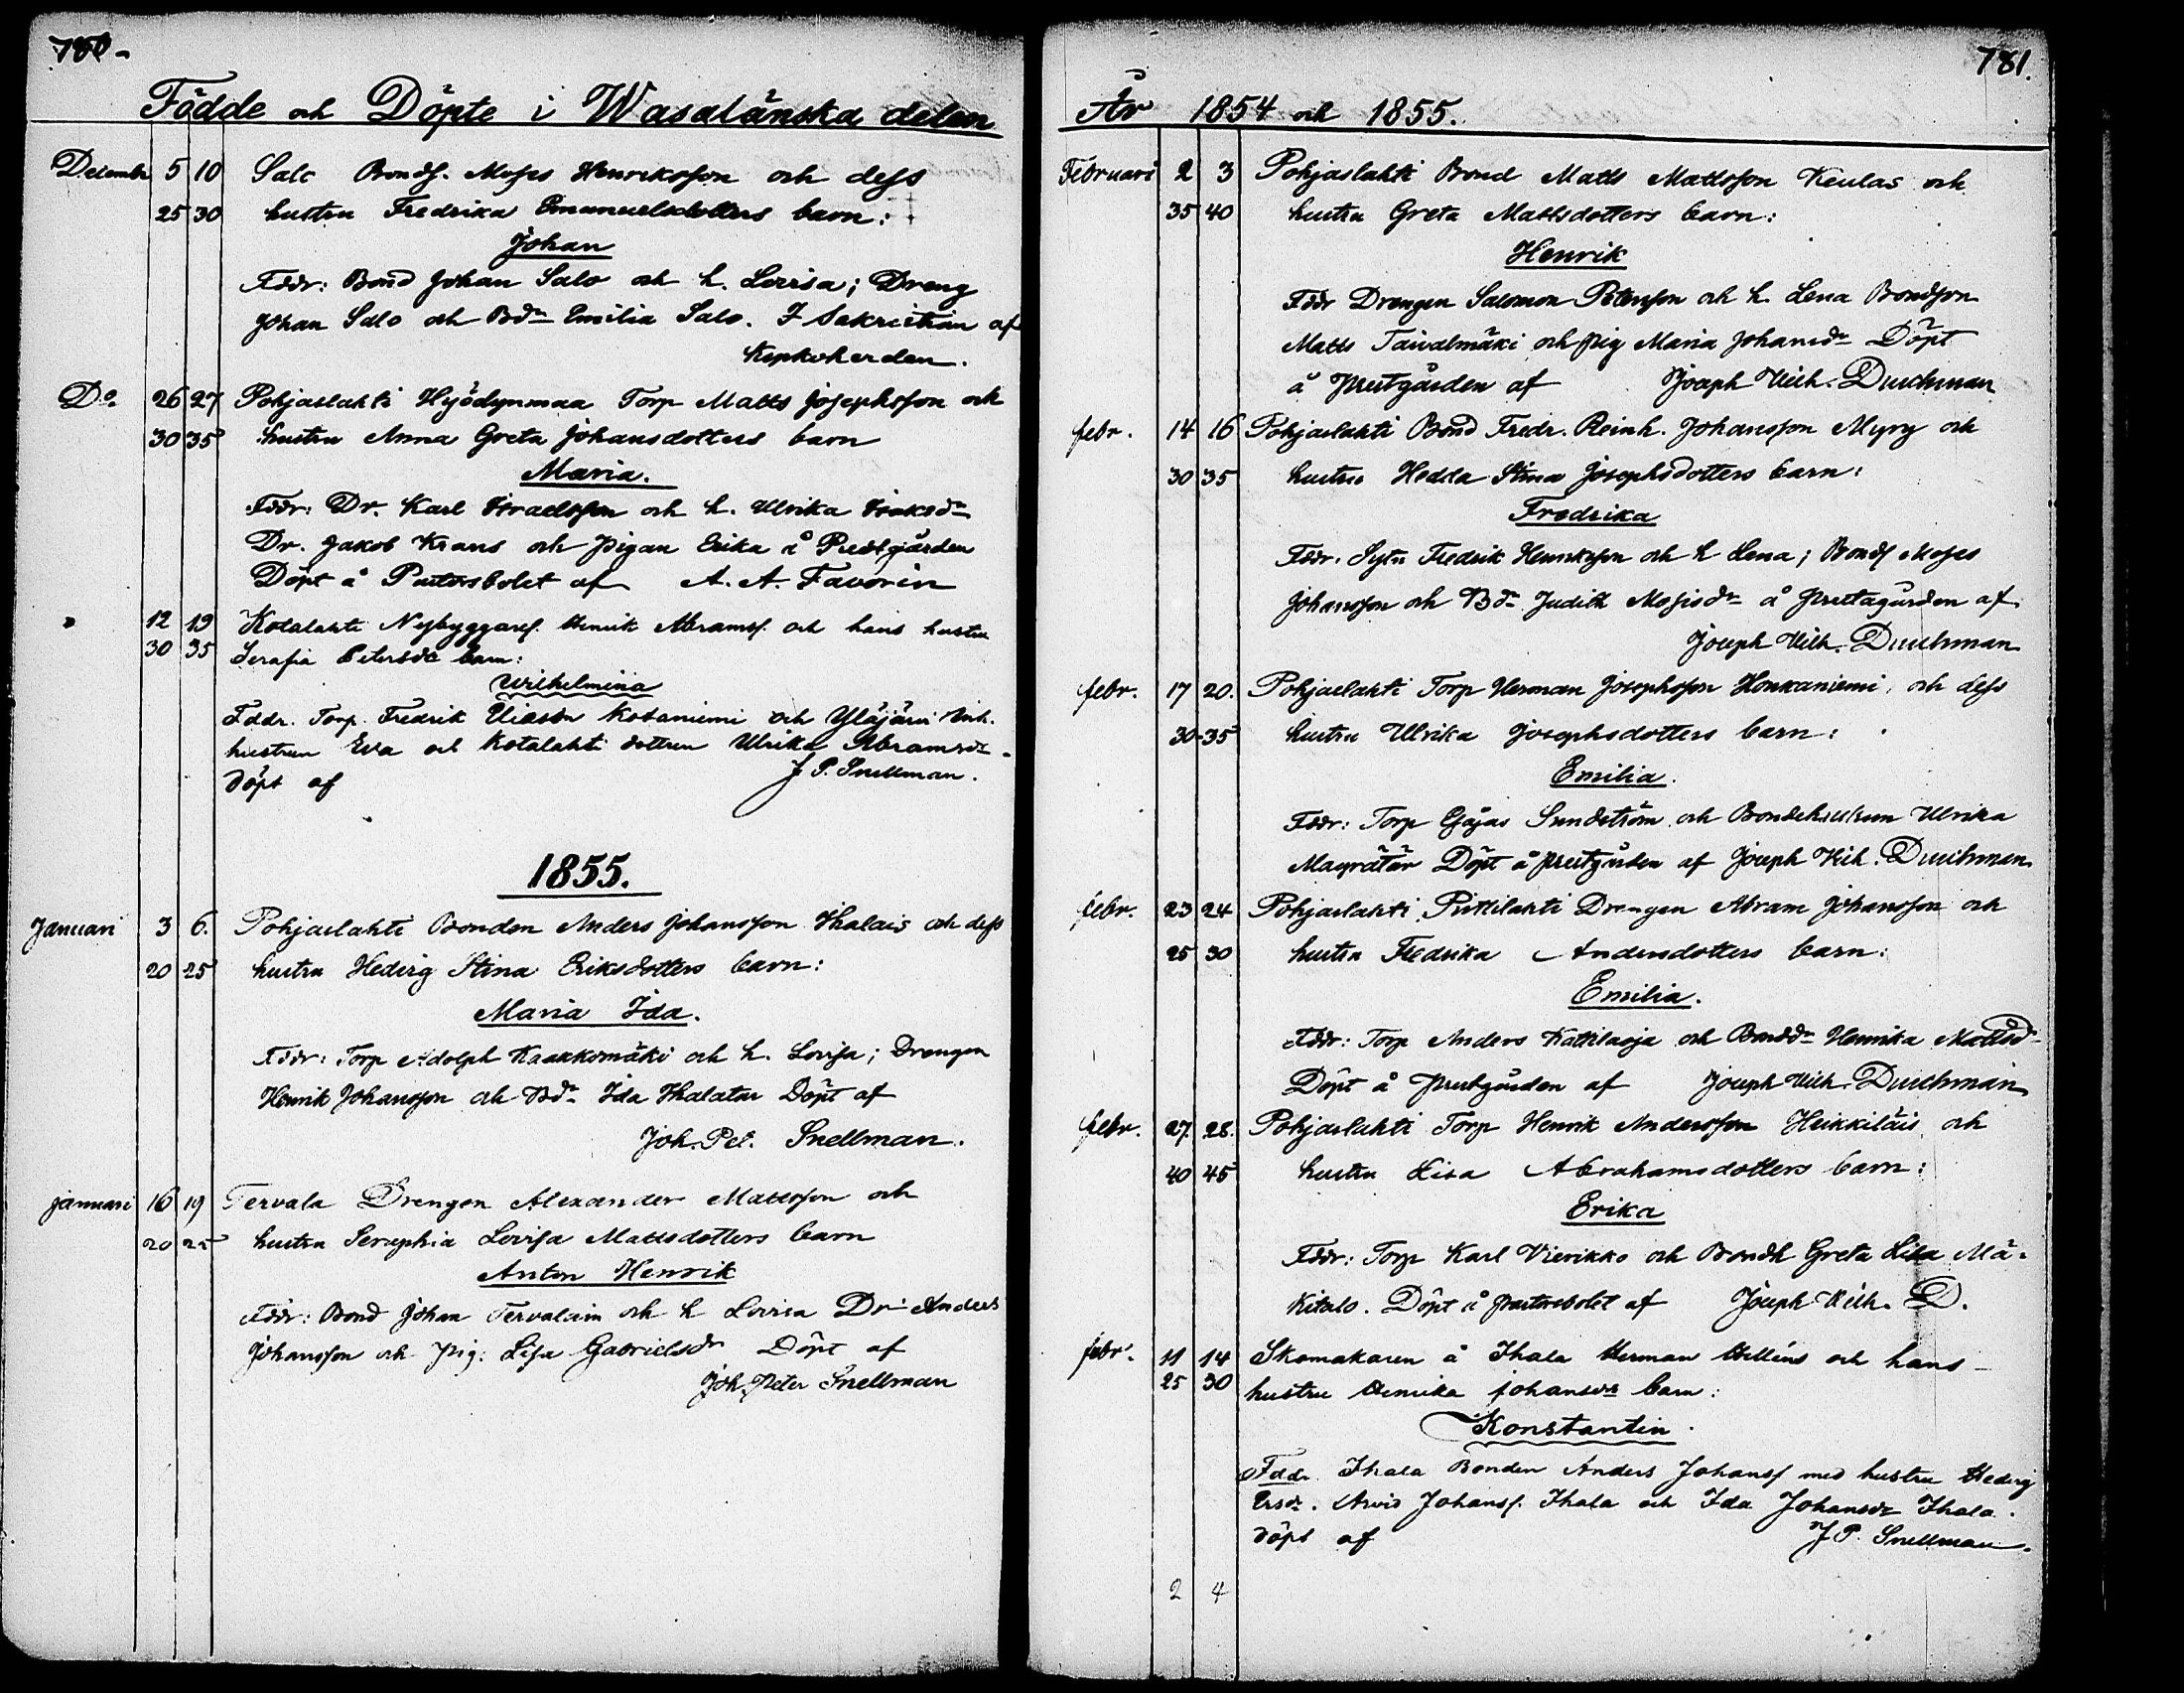 780.
Födde och Döpte i Wasalänska delen
December 5 10 Salo Bonds. Moses Henriksson och dess
25 30 hustru Fredrika Emanuelsdotters barn:
Johan
Fddr: Bond Johan Salo och h. Lovisa; Dreng
Johan Salo och Bdr Emilia Salo. I Sakristian af
Kyrkoherden.
Do 26 27 Pohjaslahti Hyödynmaa Torp Matts Josephsson och
30 35 hustru Anna Greta Johansdotters barn
Maria.
Fddr: Dr. Karl Israelsson och h. Ulrika Isaksdr
Dr. Jakob Krans och pigan Erika å Prestgården
Döpt å Pastorsbolet af A. A. Favorin
" 12 19 Kotalahti Nybyggares. Henrik Abrams. och hans hustru
30 35 Serafia Petersdr barn:
Wilhelmina
Fddr. Torp. Fredrik Eliasson Kotaniemi och Yläjärvi Inh.
hustrun Eva och Kotalahti dottren Ulrika Abramsdr
döpt af J P. Snellman.
1855.
Januari 3 6. Pohjaslahti Bonden Anders Johansson Ihalais och dess
20 25 hustru Hedvig Stina Eriksdotters barn:
Maria Ida.
Fddr: Torp Adolph Kaakkomäki och h. Lovisa; Drengen
Henrik Johansson och Bdr Ida Ihalatar Döpt af
Joh. Pet. Snellman.
januari 16 19 Tervala Drengen Alexander Mattsson och
20 25 hustru Seraphia Lovisa Mattsdotters barn
Anton Henrik
Fddr: Bond Johan Tervalain och h Lovisa Dr Anders
Johansson och pig: Lisa Gabrielsdr Döpt af
Joh. Peter Snellman
781.
År 1854 och 1855.
Februari 2 3 Pohjaslahti Bond Matts Mattsson Keulas och
35 40 hustru Greta Mattsdotters barn:
Henrik
Fddr Drengen Salomon Petersson och h. Lena Bondson
Matts Taivalmäki och pig Maria Johansdr Döpt
å prestgården af Joseph Vilh. Durchman
febr. 14 16 Pohjaslahti Bond Fredr. Reinh. Johansson Myry och
30 35 hustru Hedda Stina Josephsdotters barn:
Fredrika
Fddr. Sytn Fredrik Henriksson och h Lena; Bonds Moses
Johansson och Bdr Judith Mosisdr å prestagården af
Joseph Vilh. Durchman
febr. 17 20. Pohjaslahti Torp Herman Josephsson Honkaniemi och dess
30 35 hustru Ulrika Josephsdotters barn:
Emilia.
Fddr: Torp Esajas Sundström och Bondehustrun Ulrika
Döpt å prestgården af Joseph Vilh. Durchman
febr. 23 24 Pohjaslahti Pittilahti Drengen Abram Johansson och
25 30 hustru Fredrika Andersdotters barn:
Emilia.
Fddr: Torp Anders Kattilaoja och Bonddr Henrika Mattsdr
Döpt å prestgården af Joseph Vilh. Durchman
febr. 27. 28. Pohjaslahti Torp Henrik Andersson Heikkiläis och
40 45 hustru Lisa Abrahamsdotters barn:
Erika
Fddr: Torp Karl Vierikko och Bondh Greta Lisa Mä-
kitalo. Döpt å pastorsbolet af Joseph Vilh. D.
febr. 11 14 Skomakaren å Ihala Herman Helléns och hans
25 30 hustru Henrika Johansdr barn:
Konstantin.
Fddr. Ihala Bonden Anders Johans. med hustru Hedvig
Ersdr. Arvid Johans. Ihala och Ida Johansdr Ihala.
döpt af J P. Snellman.
2 4